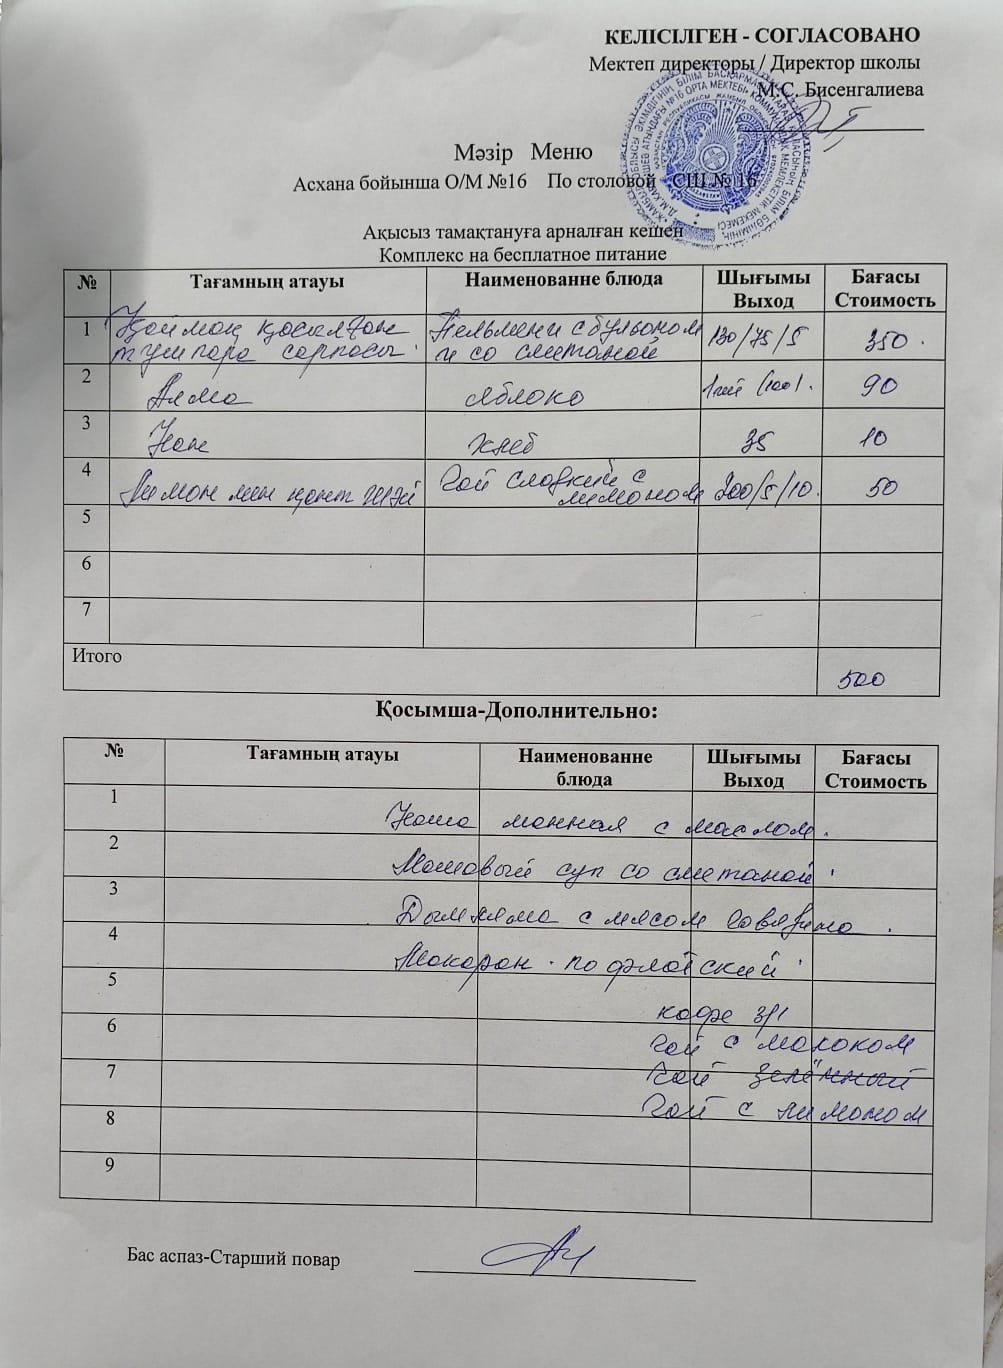 КЕЛІСІЛГЕН - СОГЛАСОВАНО
Мектеп директоры / Директор школы
М.С. Бисенгалиева
Мәзір Меню
Асхана бойынша О/М №16 По столовой СШ № 16
Ақысыз тамақтануға арналған кешен
Комплекс на бесплатное питание
№ Тағамның атауы Наименованне блюда Шығымы Выход Бағасы Стоимость
1 Қаймақ қосылған тұшпара сорпасы. Пельмени с бульоном и со сметаной 130/75/5 350.
2 Алма Яблоко 1 (100). 90
3 Нан хлеб 35 10
4 Лимон мен қант шәй Чай сладкий с лимоном 200/5/10. 50
5
6
7
Итого 500
Қосымша-Дополнительно:
№ Тағамның атауы Наименованне блюда Шығымы Выход Бағасы Стоимость
1 Каша манная с маслом.
2 Машовый суп со сметаной.
3 Дымляма с мясом говядина.
4 Макарон. по флотский.
5 кофе 3/1
6 Чай с молоком
7 Чай зелённый
8 Чай с лимоном
9
Бас аспаз-Старший повар